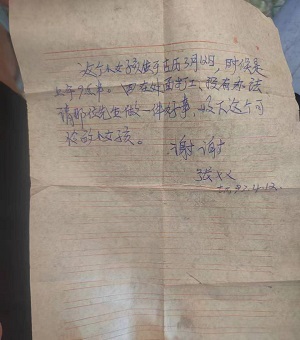 这个小女孩生于古历3月12日,时候是
上午9点半。因在外面打工,没有办法
请那位先生做一件好事,收下这个可
怜的小女孩。
谢谢